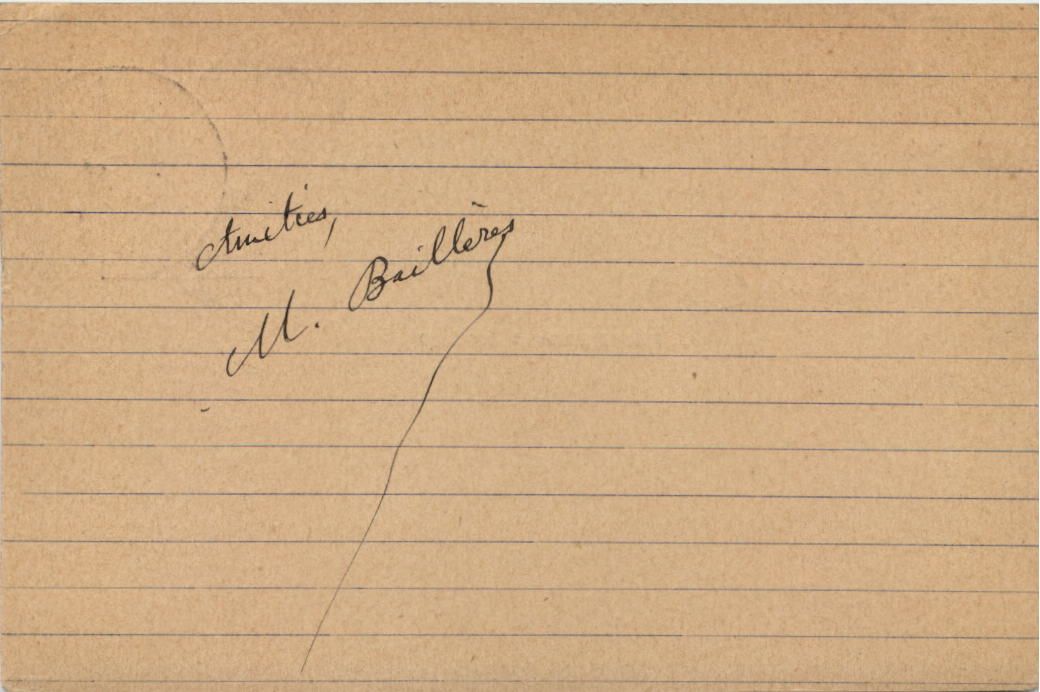 Amitiés,
M. Baillères